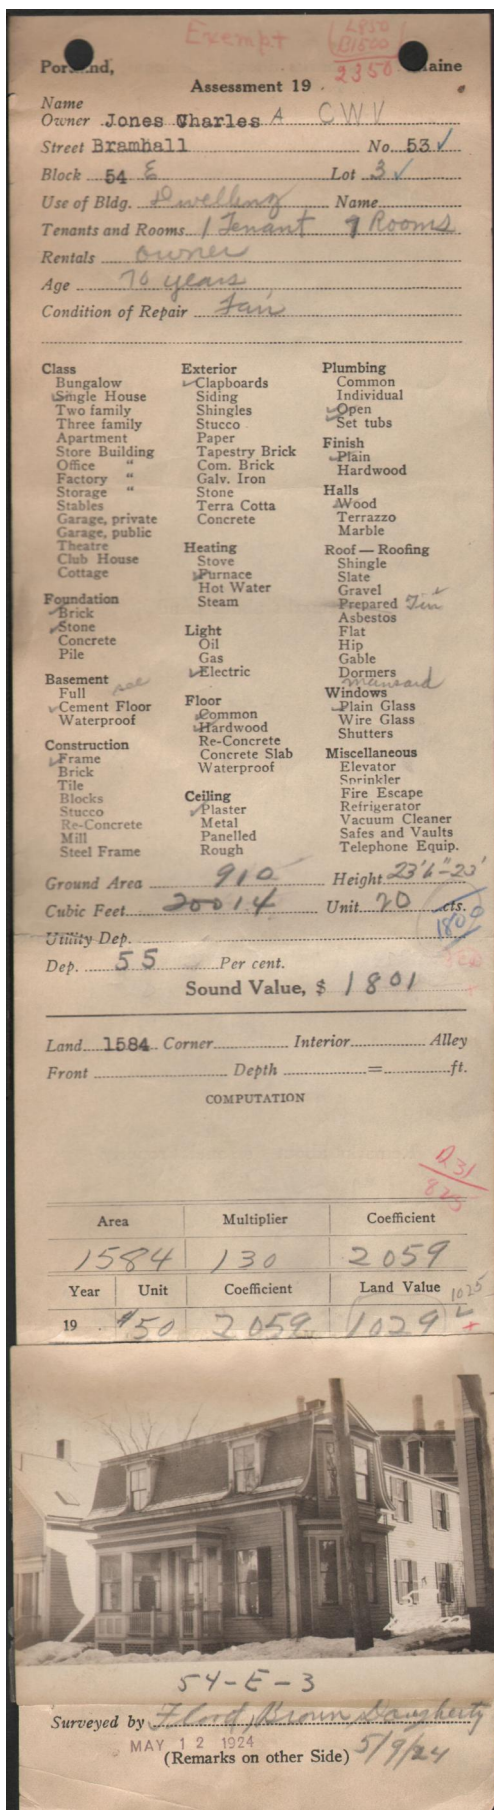 Exempt
L850
B1500
2350
Portland, Maine
Assessment 19
Name
Owner Jones Charles A CWV
Street Bramhall No. 53 ✓
Block 54 E Lot 3 ✓
Use of Bldg. Dwelling Name
Tenants and Rooms 1 Tenant 9 Rooms
Rentals owner
Age 70 years
Condition of Repair Fair
Class
Bungalow
Single House
Two family
Three family
Apartment
Store Building
Office "
Factory "
Storage "
Stables
Garage, private
Garage, public
Theatre
Club House
Cottage
Foundation
Brick
Stone
Concrete
Pile
Basement
Full
Cement Floor
Waterproof
Construction
Frame
Brick
Tile
Blocks
Stucco
Re-Concrete
Mill
Steel Frame
Exterior
Clapboards
Siding
Shingles
Stucco
Paper
Tapestry Brick
Com. Brick
Galv. Iron
Stone
Terra Cotta
Concrete
Heating
Stove
Furnace
Hot Water
Steam
Light
Oil
Gas
Electric
Floor
Common
Hardwood
Re-Concrete
Concrete Slab
Waterproof
Ceiling
Plaster
Metal
Panelled
Rough
Plumbing
Common
Individual
Open
Set tubs
Finish
Plain
Hardwood
Halls
Wood
Terrazzo
Marble
Roof — Roofing
Shingle
Slate
Gravel
Prepared Tin
Asbestos
Flat
Hip
Gable
Dormers
mansard
Windows
Plain Glass
Wire Glass
Shutters
Miscellaneous
Elevator
Sprinkler
Fire Escape
Refrigerator
Vacuum Cleaner
Safes and Vaults
Telephone Equip.
Ground Area 910 Height 23'6"-23'
Cubic Feet 20014 Unit 20 cts.
1800
Utility Dep.
Dep. 55 Per cent.
Sound Value, $ 1801
Land 1584 Corner Interior Alley
Front Depth = ft.
COMPUTATION
Area Multiplier Coefficient
1584 130 2059
Year Unit Coefficient Land Value 1025
19 $50 2059 1029
54-E-3
Surveyed by Flood, Brown, Daugherty
MAY 12 1924
(Remarks on other Side) 5/9/24